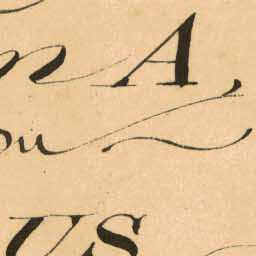 n A,
ou
US